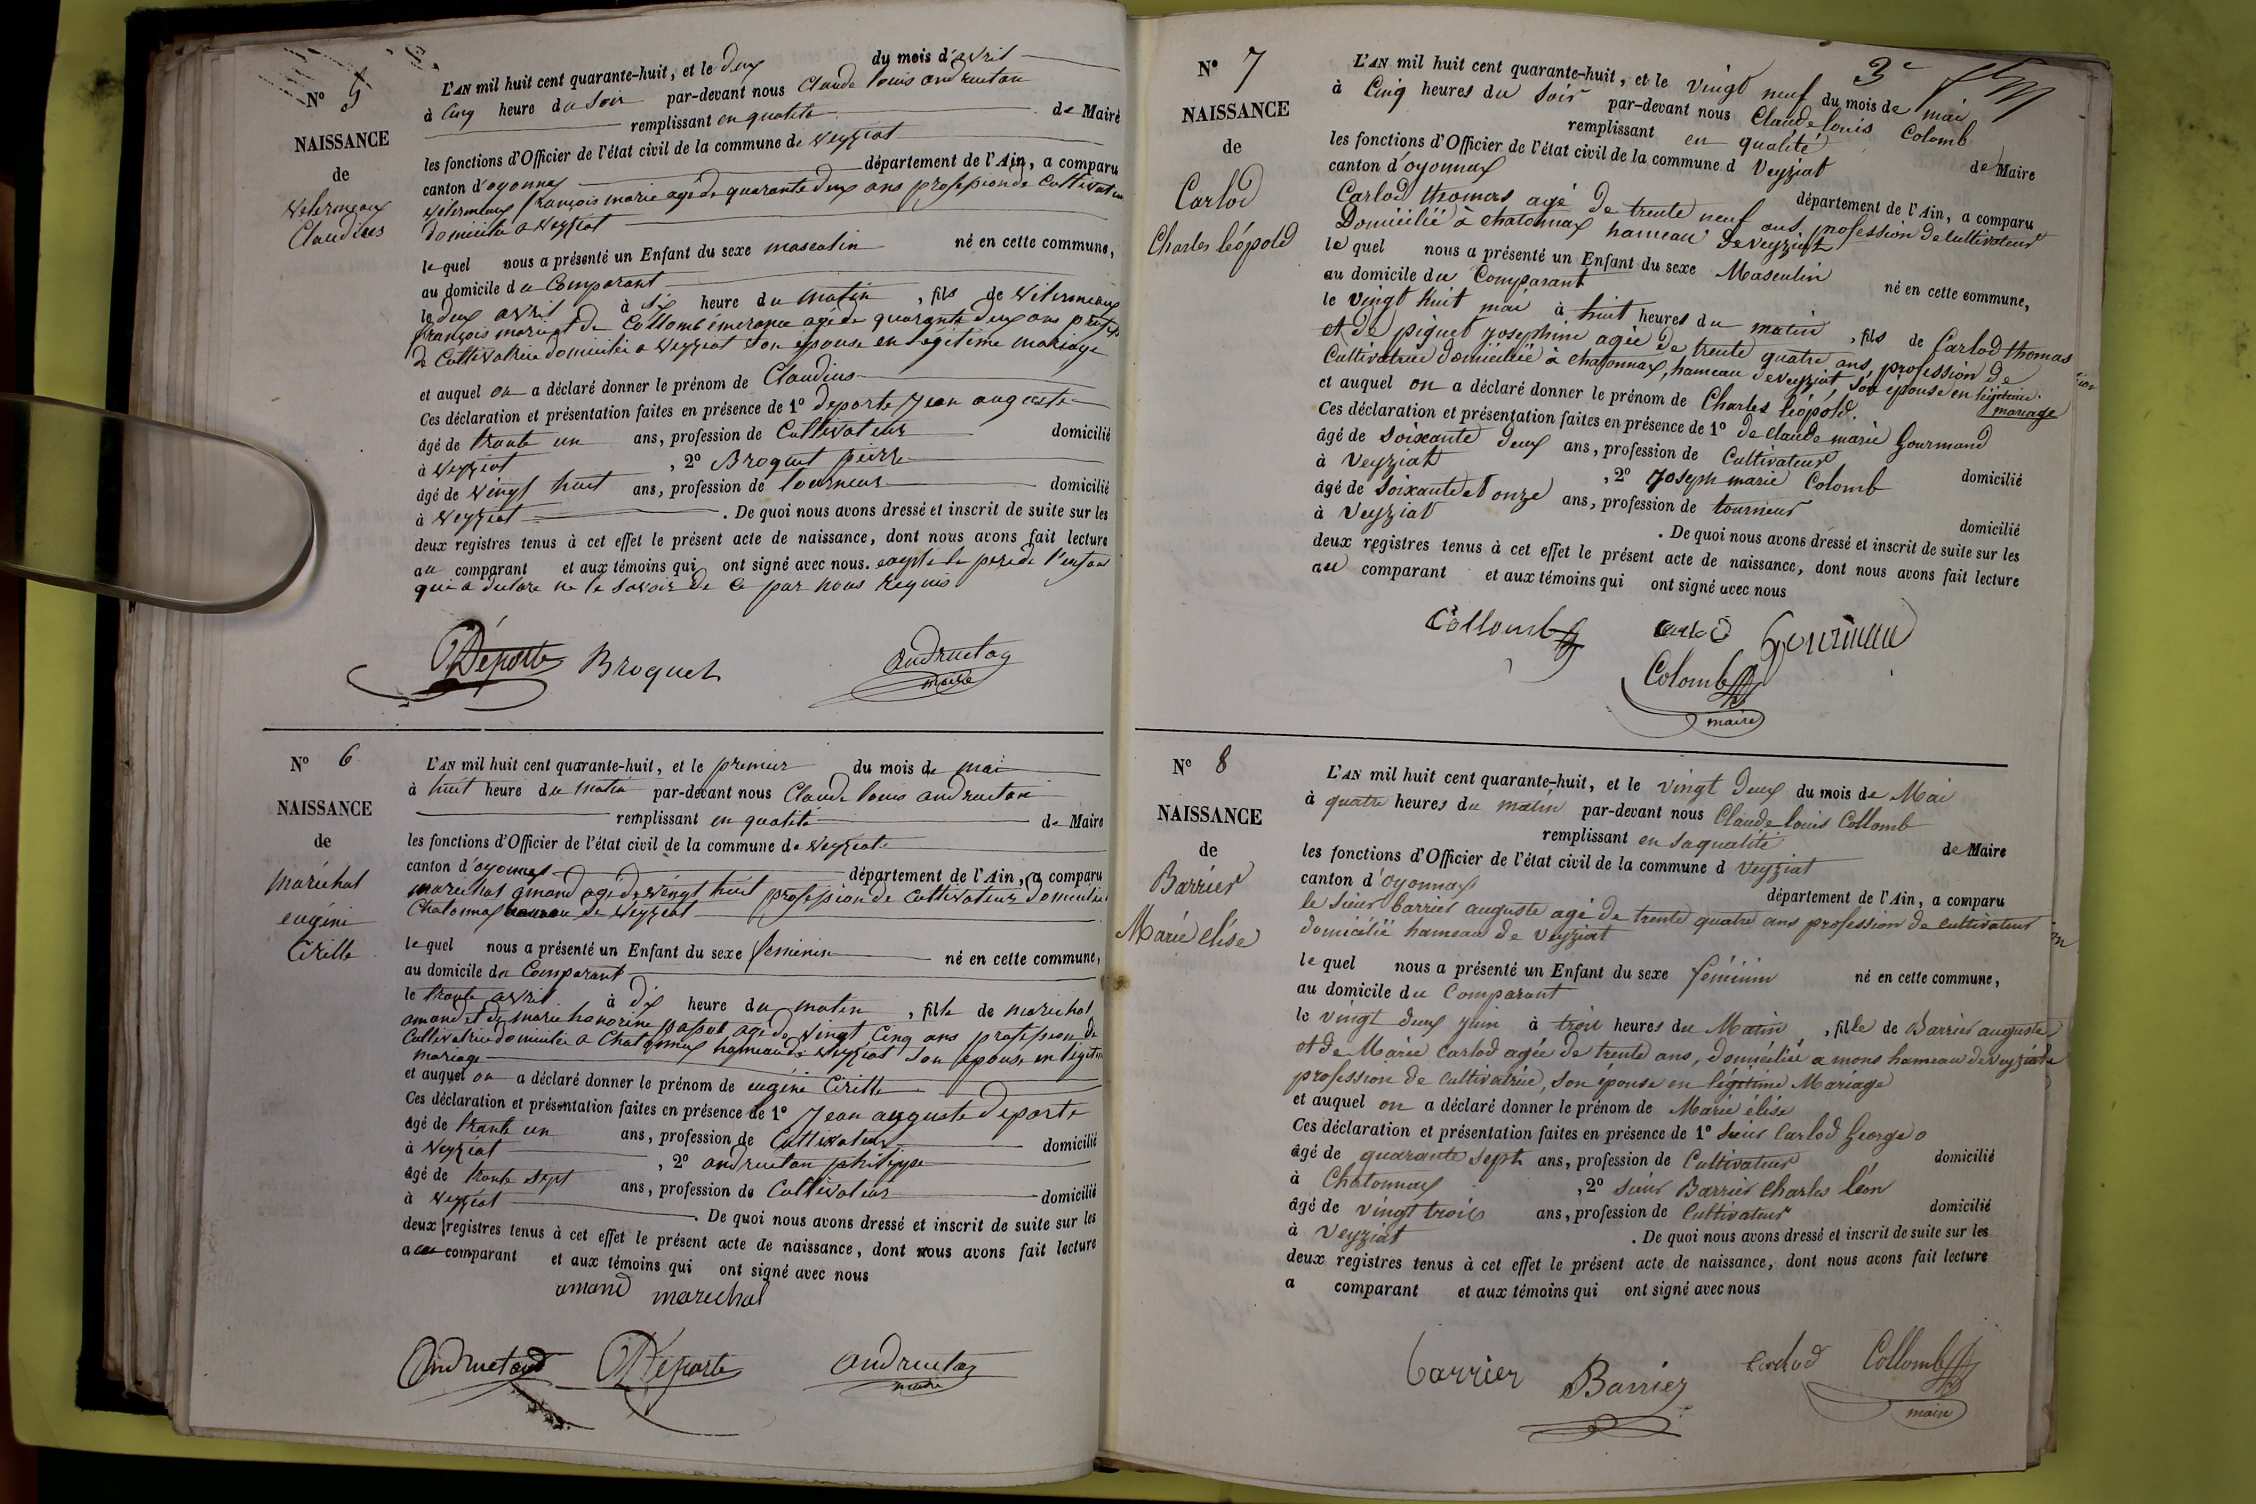 N° 5
NAISSANCE
de
Vilermeaux
Claudius
L'AN mil huit cent quarante-huit, et le deux du mois d'avril
à Cinq heure du Soir par-devant nous Claude louis andruetan
remplissant en qualité de Maire
les fonctions d'Officier de l'état civil de la commune de Veyziat
canton d'oyonnax département de l'Ain, a comparu
Vilermeaux françois marie agé de quarante deux ans profession de Cultivateur
domicilié a Veyziat
le quel nous a présenté un Enfant du sexe masculin né en cette commune,
au domicile du Comparant
le deux avril à six heure du matin, fils de Vilermeaux
françois marie et de Collomb émerance agée de quarante deux ans profess
de Cultivatrice domiciliée a Veyziat son épouse en légitime mariage
et auquel on a déclaré donner le prénom de Claudius
Ces déclaration et présentation faites en présence de 1° deporte Jean auguste
âgé de trante un ans, profession de Cultivateur domicilié
à Veyziat, 2° Broquet pierre
âgé de vingt huit ans, profession de tourneur domicilié
à Veyziat. De quoi nous avons dressé et inscrit de suite sur les
deux registres tenus à cet effet le présent acte de naissance, dont nous avons fait lecture
au comparant et aux témoins qui ont signé avec nous. excepté le père de l'enfant
qui a déclaré ne le savoir de ce par nous requis
Déporte Broquet andruetan
maire
N° 6
NAISSANCE
de
maréchal
eugénie
Cirille
L'AN mil huit cent quarante-huit, et le premier du mois de mai
à huit heure du matin par-devant nous Claude louis andruetan
remplissant en qualité de Maire
les fonctions d'Officier de l'état civil de la commune de Veyziat
canton d'oyonnax département de l'Ain, a comparu
marechal amand agé de vingt huit profession de Cultivateur domicilié
Chatonnax hameau de Veyziat
le quel nous a présenté un Enfant du sexe feminin né en cette commune,
au domicile du Comparant
le trante avril à dix heure du matin, fille de marechal
amand et de marie honorine agée de vingt Cinq ans profession de
Cultivatrice domiciliée a Chatonnax hameau de Veyziat son épouse en légitime
mariage
et auquel on a déclaré donner le prénom de eugénie Cirille
Ces déclaration et présentation faites en présence de 1° Jean auguste deporte
âgé de trante un ans, profession de Cultivateur domicilié
à Veyziat, 2° andruetan philippe
âgé de trante sept ans, profession de Cultivateur domicilié
à Veyziat. De quoi nous avons dressé et inscrit de suite sur les
deux registres tenus à cet effet le présent acte de naissance, dont nous avons fait lecture
au comparant et aux témoins qui ont signé avec nous
amand marechal
Andruetand Déporte andruetan
maire
3e
N° 7
NAISSANCE
de
Carlod
Charles léopold
L'AN mil huit cent quarante-huit, et le vingt neuf du mois de mai
à Cinq heures du soir par-devant nous Claude louis Colomb
remplissant en qualité de Maire
les fonctions d'Officier de l'état civil de la commune d Veyziat
canton d'oyonnax département de l'Ain, a comparu
Carlod thomas agé de trente neuf ans, profession de cultivateur
Domicilié à chatonnax hameau de veyziat
le quel nous a présenté un Enfant du sexe Masculin né en cette commune,
au domicile du Comparant
le vingt huit mai à huit heures du matin, fils de Carlod thomas
et de piquet josephine agée de trente quatre ans, profession de
Cultivatrice domiciliée à chatonnax, hameau de veyziat, son épouse en légitime
mariage
et auquel on a déclaré donner le prénom de Charles léopold.
Ces déclaration et présentation faites en présence de 1° de claude marie Gourmand
âgé de soixante deux ans, profession de Cultivateur domicilié
à Veyziat, 2° Joseph marie Colomb
âgé de soixante et onze ans, profession de tourneur domicilié
à Veyziat. De quoi nous avons dressé et inscrit de suite sur les
deux registres tenus à cet effet le présent acte de naissance, dont nous avons fait lecture
au comparant et aux témoins qui ont signé avec nous
Collomb carlod Gourmau
Colomb
maire
N° 8
NAISSANCE
de
Barrier
Marie elise
L'AN mil huit cent quarante-huit, et le vingt deux du mois de Mai
à quatre heures du matin par-devant nous Claude louis Collomb
remplissant en sa qualité de Maire
les fonctions d'Officier de l'état civil de la commune d Veyziat
canton d'oyonnax département de l'Ain, a comparu
le sieur barrier auguste agé de trente quatre ans profession de cultivateur
domicilié hameau de veyziat
le quel nous a présenté un Enfant du sexe féminin né en cette commune,
au domicile du Comparant
le vingt deux juin à trois heures du Matin, fille de Barrier auguste
et de Marie Carlod agée de trente ans, domiciliée a mons hameau de veyziat
profession de cultivatrice, son épouse en légitime Mariage
et auquel on a déclaré donner le prénom de Marie élise
Ces déclaration et présentation faites en présence de 1° sieur Carlod George
âgé de quarante sept ans, profession de Cultivateur domicilié
à Chatonnax, 2° sieur Barrier Charles léon
âgé de vingt trois ans, profession de Cultivateur domicilié
à Veyziat. De quoi nous avons dressé et inscrit de suite sur les
deux registres tenus à cet effet le présent acte de naissance, dont nous avons fait lecture
a comparant et aux témoins qui ont signé avec nous
barrier Barrier carlod Collomb
maire